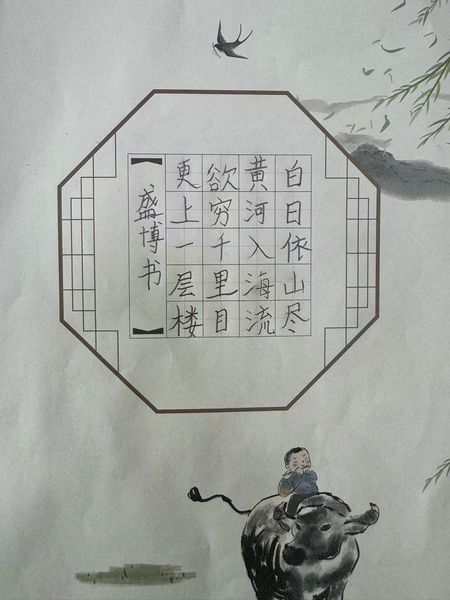 白日依山尽
黄河入海流
欲穷千里目
更上一层楼
【盛博书】